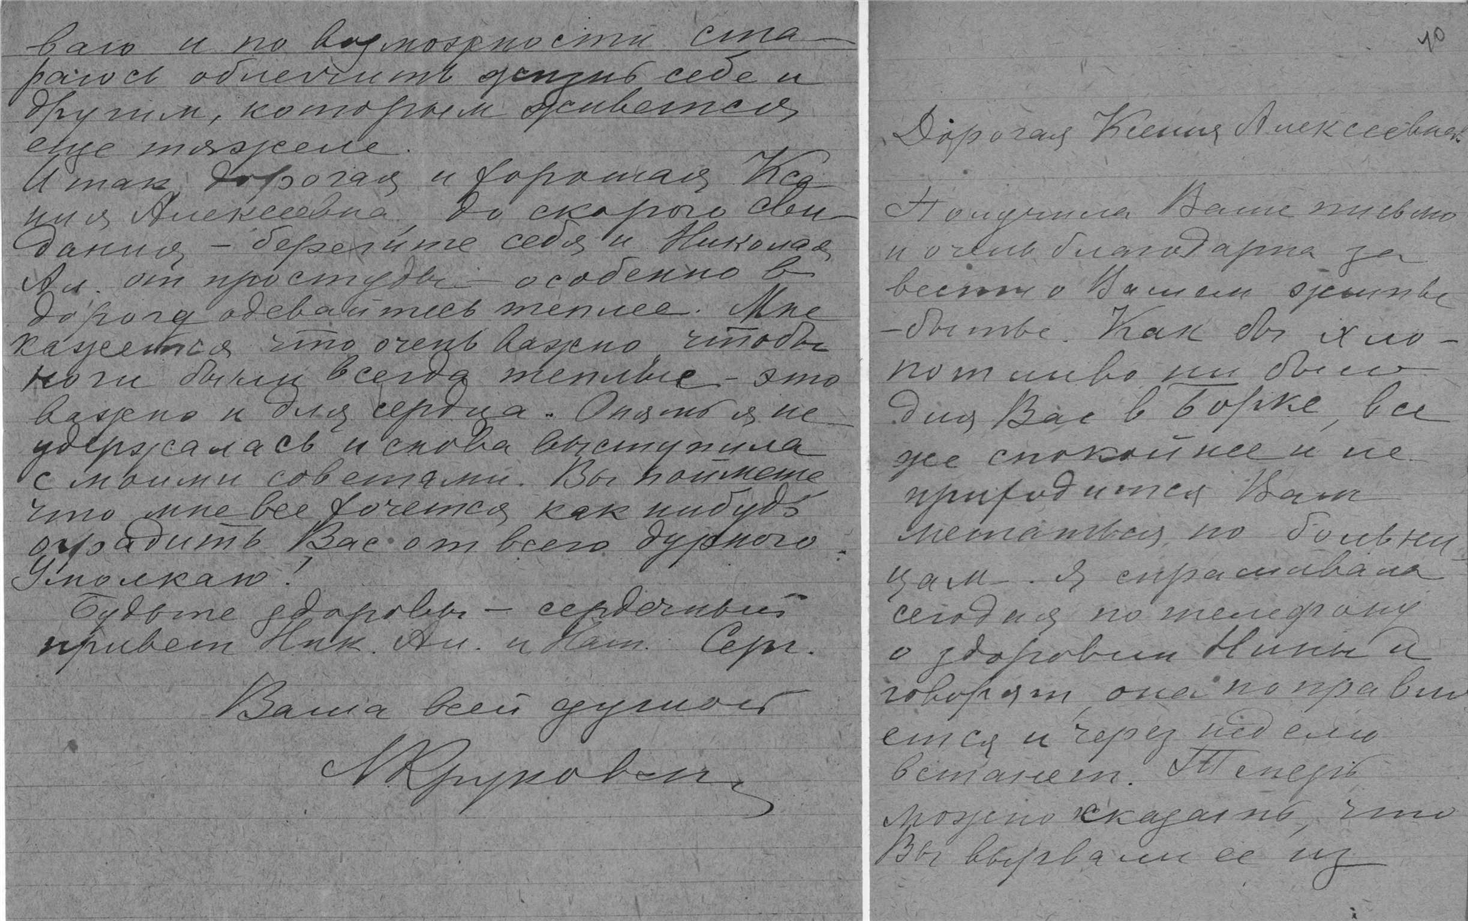 ваю и по возможности ста-
раюсь облегчить жизнь себе и
другим, которым живется
еще тяжеле.
Итак, дорогая и хорошая Ксе
ния Алексеевна, до скорого сви-
дания – берегите себя и Николая
Ал. от простуды – особенно в
дорогу одевайтесь теплее. Мне
кажется что очень важно, чтобы
ноги были всегда теплые – это
важно и для сердца. Опять я не
удержалась и снова выступила
с моими советами. Вы поймете
что мне все хочется как нибудь
оградить Вас от всего дурного.
Умолкаю!
Будьте здоровы – сердечный
привет Ник. Ал. и Нат. Серг.
Ваша всей душой
М Круковск
10
Дорогая Ксения Алексеевна
Получила Ваше письмо
и очень благодарна за
вести о Вашем житье
-бытье. Как бы хло-
потливо ни было
для Вас в Борке, все
же спокойнее и не
приходится Вам
метаться по больни
цам – . Я спрашивала
сегодня по телефону
о здоровии Нины и
говорят, она поправля
ется и через неделю
встанет. Теперь
можно сказать, что
Вы вырвали ее из